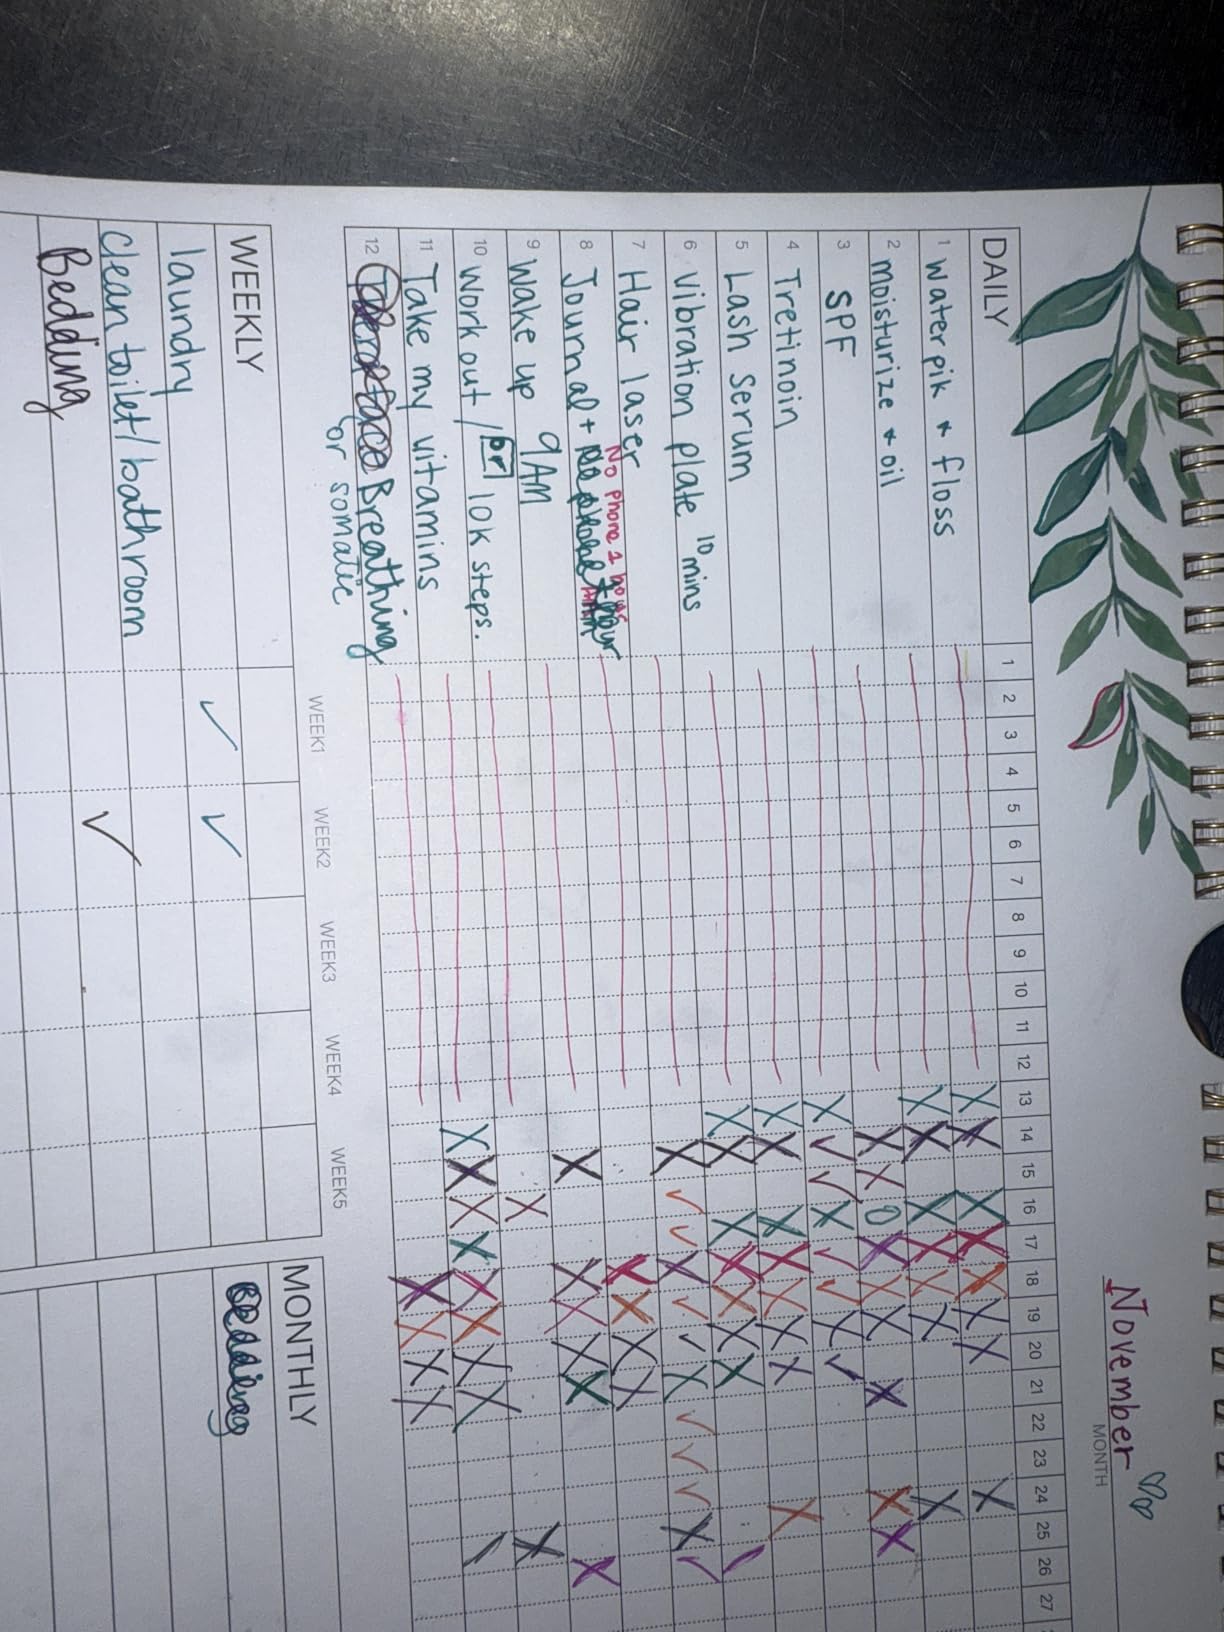 November
MONTH
DAILY 1 2 3 4 5 6 7 8 9 10 11 12 13 14 15 16 17 18 19 20 21 22 23 24 25 26 27
1 Waterpik + floss
2 moisturize + oil
3 SPF
4 Tretinoin
5 Lash Serum
6 Vibration plate 10 mins
7 Hair laser
No phone 1 hour
8 Journal +
9 Wake up 9AM
10 Work out / or 10k steps.
11 Take my vitamins
12 Breathing
or somatic
WEEK1 WEEK2 WEEK3 WEEK4 WEEK5
WEEKLY
laundry
clean toilet/bathroom
Bedding
MONTHLY
Bedding